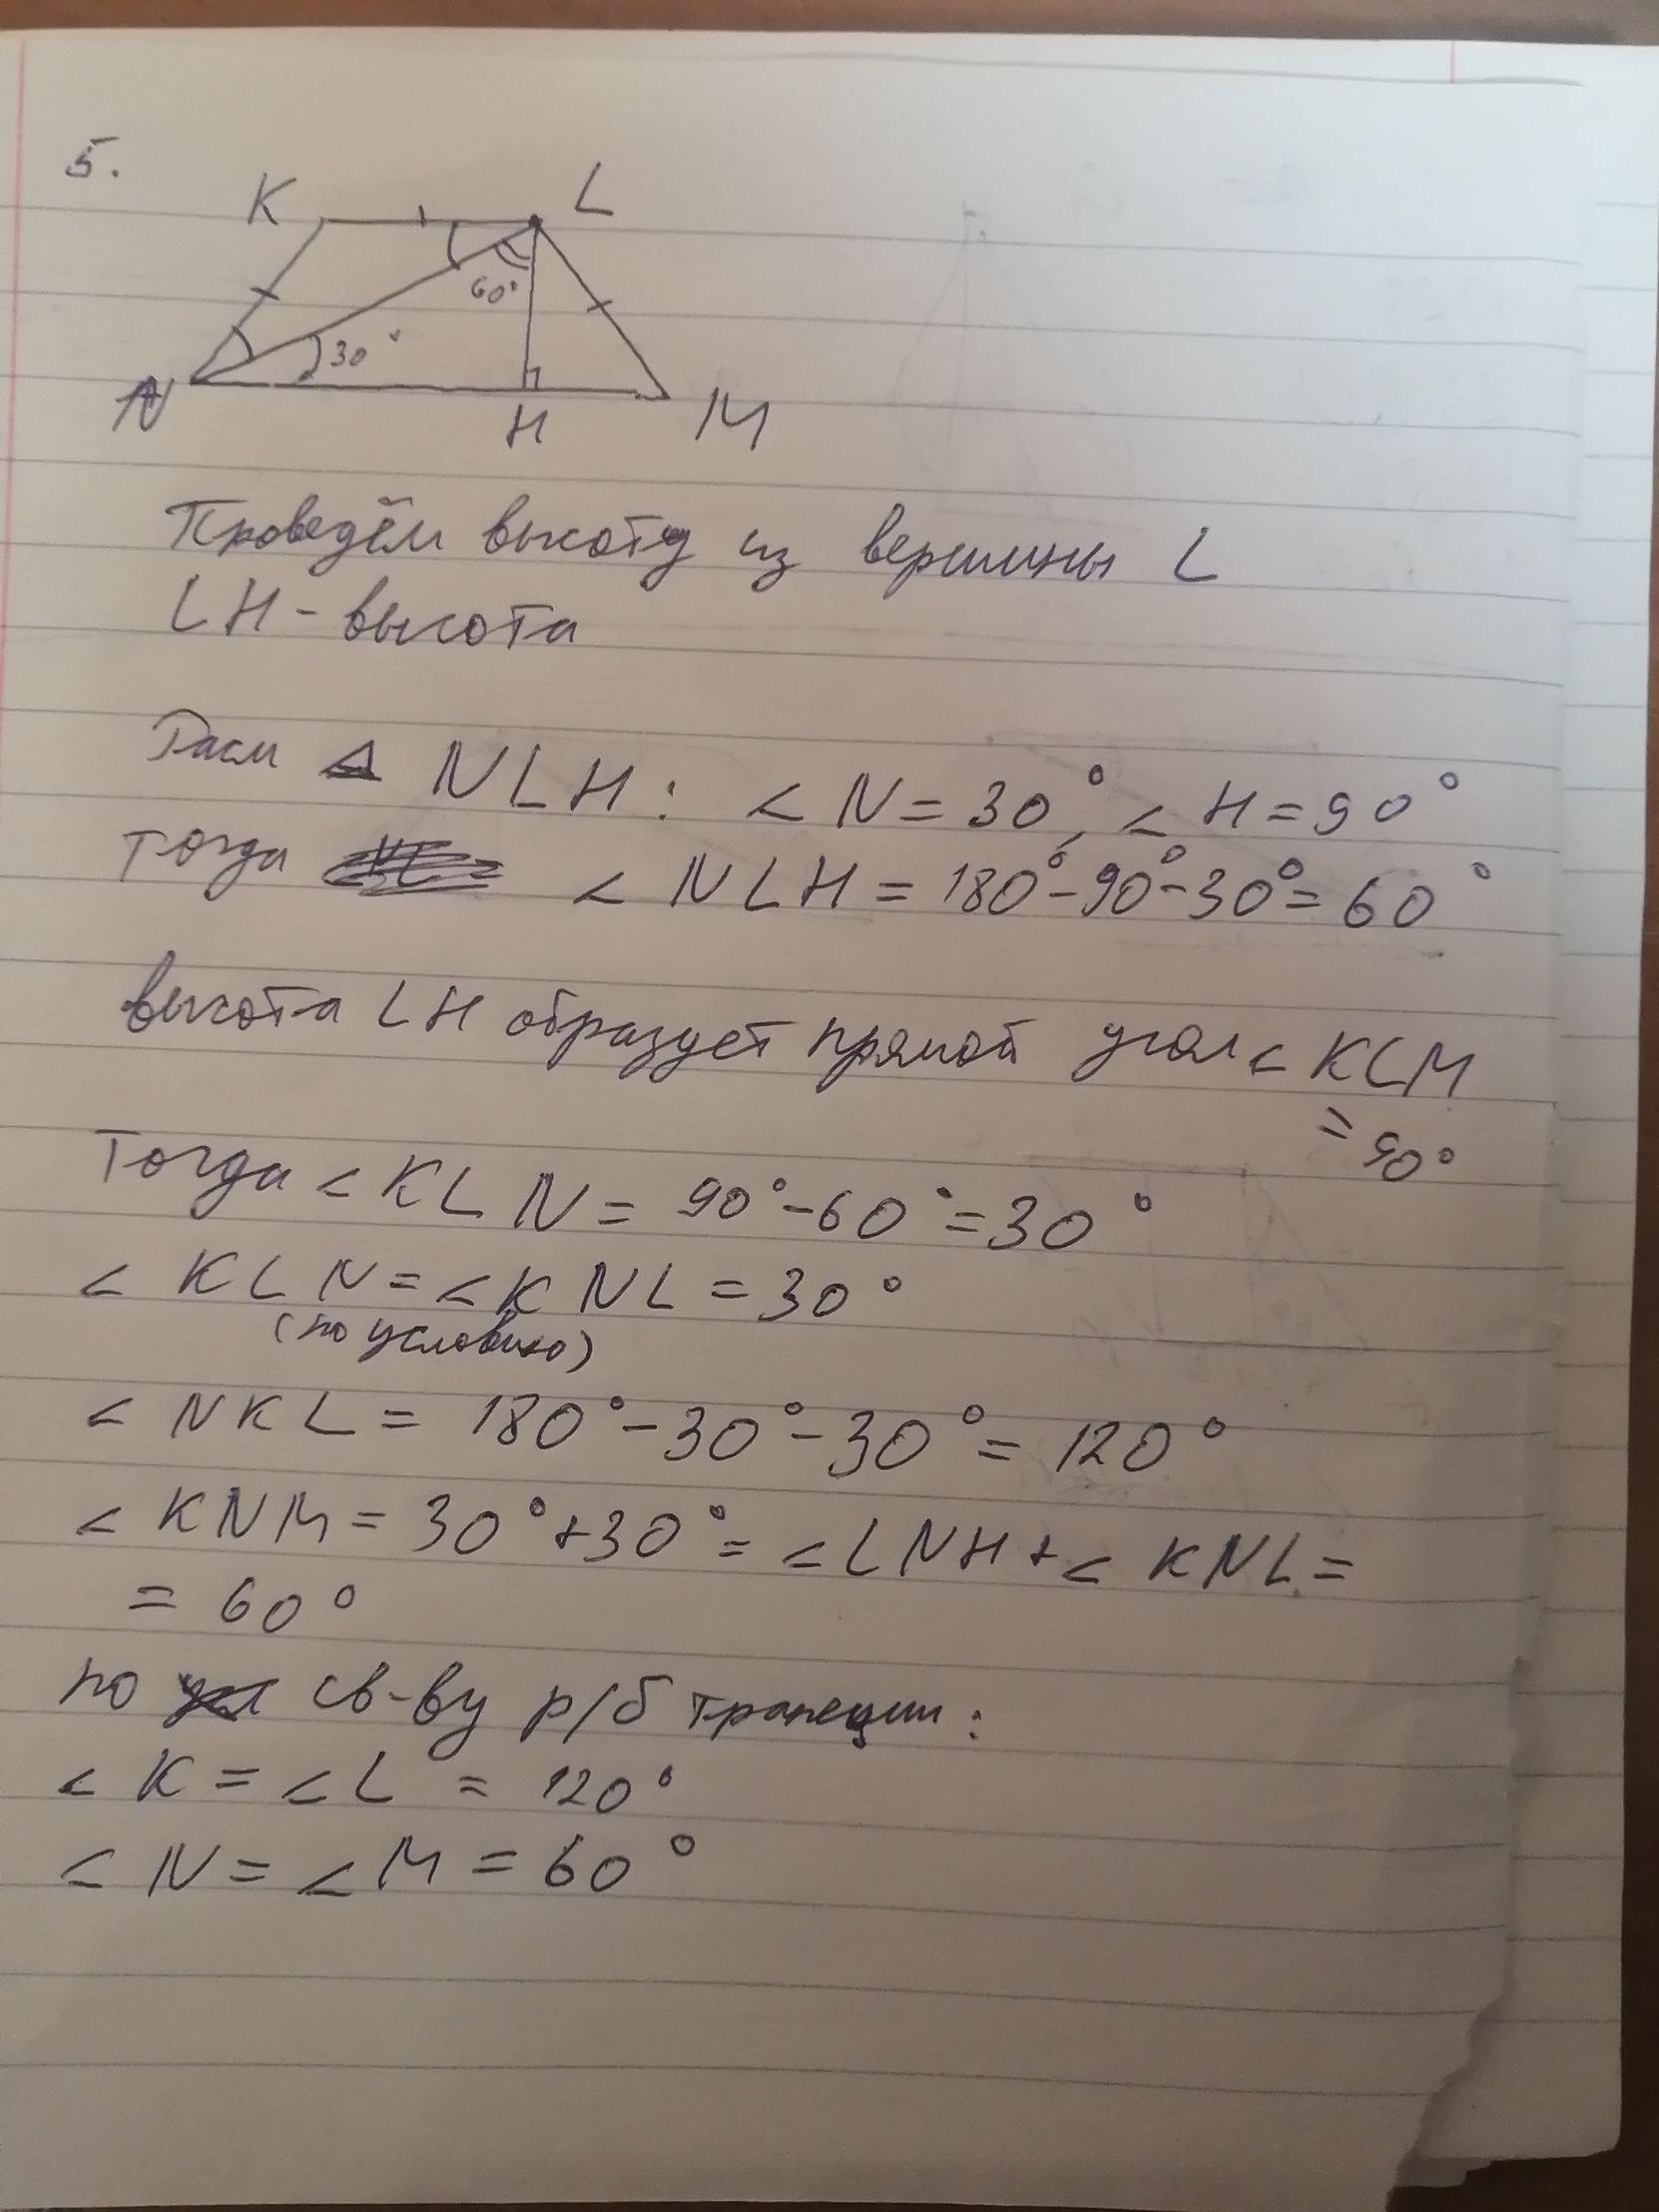 5.
K L
60°
30°
N H M
Проведём высоту из вершины L
LH - высота
Расм △ NLH: < N = 30°, < H = 90°
Тогда < NLH = 180° - 90° - 30° = 60°
высота LH образует прямой угол < KLM
= 90°
Тогда < KLN = 90° - 60° = 30°
< KLN = < KNL = 30°
(по условию)
< NKL = 180° - 30° - 30° = 120°
< KNM = 30° + 30° = < LNH + < KNL =
= 60°
по св-ву р/б трапеции:
< K = < L = 120°
< N = < M = 60°